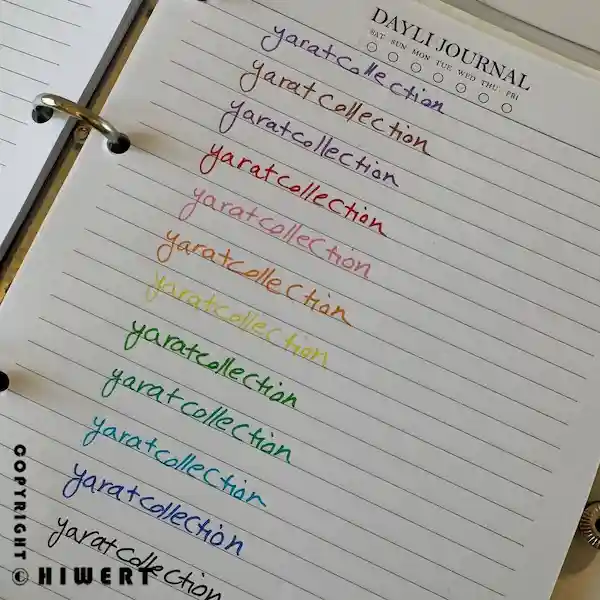 DAYLI JOURNAL
SAT SUN MON TUE WED THU FRI
yaratcollection
yaratcollection
yaratcollection
yaratcollection
yaratcollection
yaratcollection
yaratcollection
yaratcollection
yaratcollection
yaratcollection
yaratcollection
yaratcollection
COPYRIGHT
© HIWERT